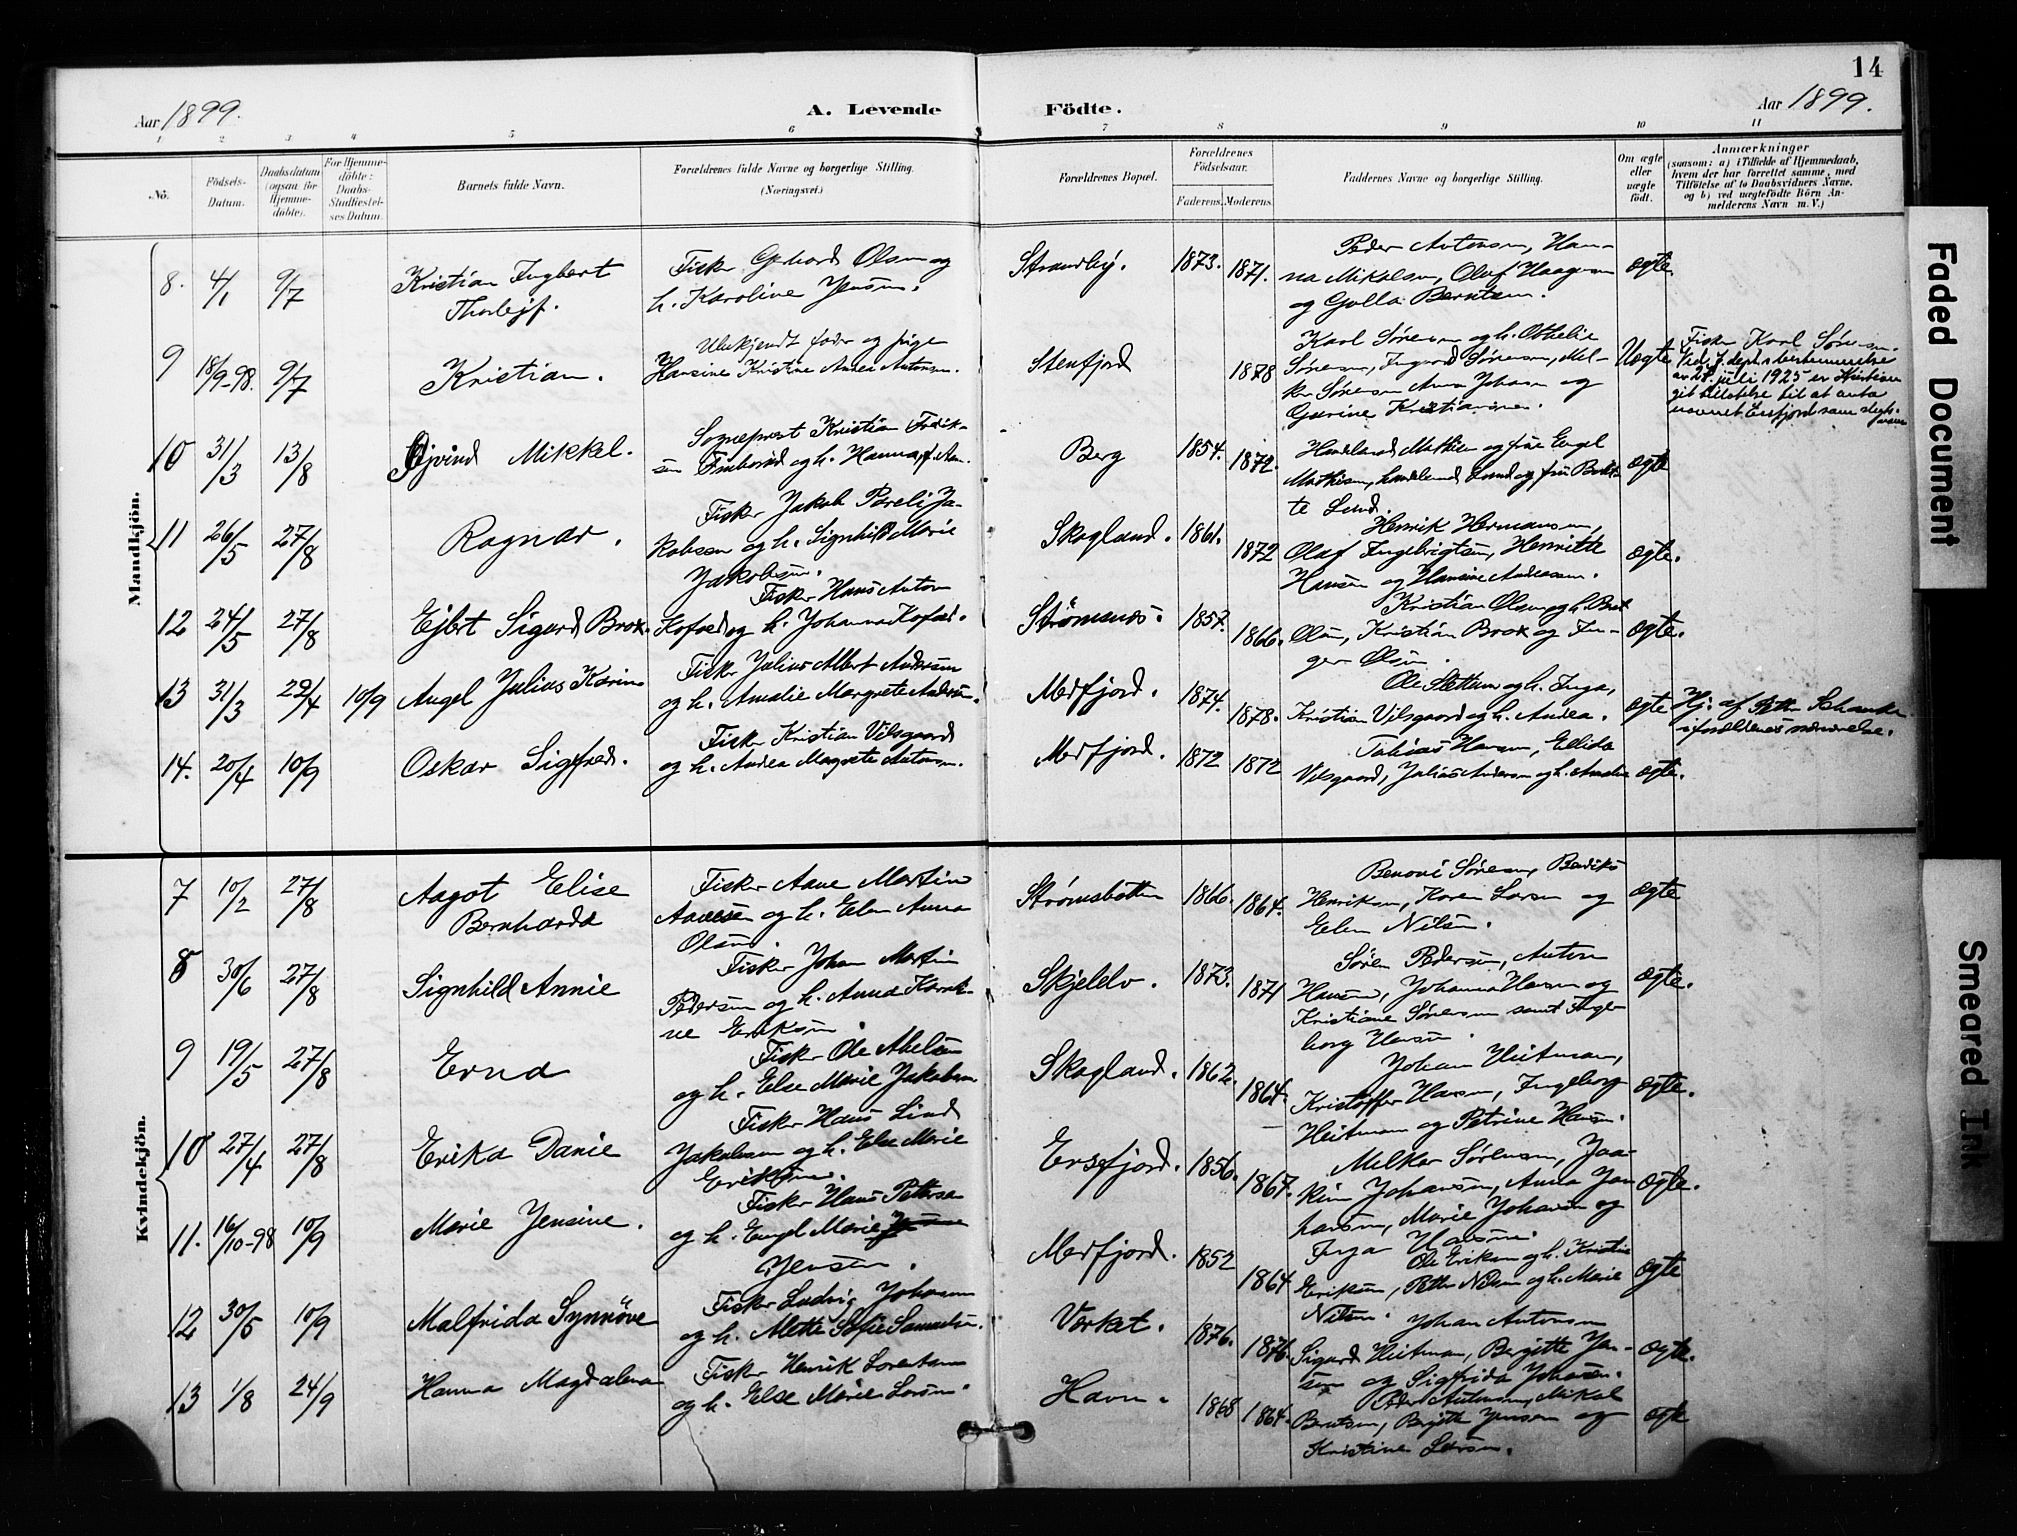 14
Aar 1899.
A. Levende Födte.
Aar 1899.
1 2 3 4 5 6 7 8 9 10 11
No.
Födsels-
Datum.
Daabsdatum
(ogsaa for
Hjemme-
döbte).
For Hjemme-
döbte:
Daabs-
Stadfæstel-
ses Datum.
Barnets fulde Navn.
Forældrenes fulde Navne og borgerlige Stilling.
(Næringsvei.)
Forældrenes Bopæl.
Forældrenes
Födselsaar.
Faderens. Moderens.
Faddernes Navne og borgerlige Stilling.
Om ægte
eller
uægte
födt.
Anmærkninger
(saasom: a) i Tilfælde af Hjemmedaab,
hvem der har forrettet samme, med
Tilföielse af to Daabsvidners Navne,
og b) ved uægtefödte Börn An-
melderens Navn m. V.)
Mandkjön.
8. 4/1 9/7 Kristian Ingbert
Thorlejf.
Fisker Gerhard Olsen og
h. Karoline Jensen.
Strandby. 1873. 1871.
Peder Antonsen, Han-
na Mikalsen, Olaf Haagensen
og Golla Berntsen.
ægte.
9 18/9-98. 9/7 Kristian.
Ubekjendt fader og pige
Hansine Kristine Andrea Antonsen.
Stenfjord 1878
Karl Sørensen og h. Othelie
Sørensen, Ingvard Sørensen, Mel-
ker Sørensen Anna Johansen og
Gurine Kristiansen.
Uægte
Fisker Karl Sørensen.
Ved J. dept.s bestemmelse
av 28. juli 1925 er Kristian
git tillatelse til at anta
navnet Ersfjord som slegts-
navn
10 31/3 13/8 Øjvind Mikkel.
Sogneprest Kristian Fredrik-
sen og h. Hanna
Berg 1854. 1872.
Handlende Mathisen og frue Engel
Mathisen, handlende Lund og frue Berit-
te Lund.
ægte
11 26/5 27/8 Ragnar.
Fisker Jakob Pareli Ja-
kobsen og h. Signhild Marie
Jakobsen.
Skagland. 1861. 1872
Henrik Hermansen,
Olaf Ingebrigtsen, Henrikke
Hansen og Hansine Andreassen.
ægte.
12 24/5 27/8 Ejlert Sigurd Brox.
Fisker Hans Anton
Kofoed og h. Johanna Kofoed.
Strømsnæs. 1857. 1866.
Kristian Olsen og h. Berit
Olsen, Kristian Brox og In-
ger Olsen.
ægte.
13 31/3 22/4 10/9 Angel Julius Karine
Fisker Julius Albert Andersen
og h. Amalie Margrete Andersen.
Mefjord. 1874. 1878.
Ole Slettum og h. Inga,
Kristian Vilsgaard og h. Andrea.
ægte
Hj. af Petter Schanke
i forældrenes nærværelse.
14. 20/4 10/9 Oskar Sigfred.
Fisker Kristian Vilsgaard
og h. Andrea Magrete Antonsen.
Mefjord. 1872 1872
Tobias Hansen, Ellida
Vilsgaard, Julius Andersen og h. Amalie
ægte.
Kvindekjön.
7 10/2 27/8 Aagot Elise
Bernharda
Fisker Aane Martin
Aanesen og h. Elen Anna
Olsen.
Strømsbotten 1866. 1864.
Benoni Sørensen, Bendiks
Henriksen, Karen Larsen og
Elen Nilsen.
ægte
8 30/6 27/8 Signhild Annie
Fisker Johan Martin
Pedersen og h. Anna Karoli-
ne Eriksen.
Skjelelv. 1873. 1871
Søren Pedersen, Anton
Hansen, Johanna Hansen og
Kristiane Sørensen samt Inge-
borg Hansen.
ægte.
9 19/5 27/8 Erna
Fisker Ole Abelsen
og h. Else Marie Jakobsen.
Skagland. 1862. 1864.
Johan Heitman,
Kristoffer Hansen, Ingeborg
Heitman og Petrine Hansen.
ægte.
10 27/4 27/8 Erika Danie
Fisker Hans Lind
Jakobsen og h. Else Marie
Eriksen.
Ersfjord. 1856. 1867.
Melker Sørensen, Joa-
kim Johansen, Anna Jo-
hansen, Marie Johansen og
Inga Hansen.
ægte.
11. 16/10-98 10/9 Marie Jensine.
Fisker Hans Petersen
og h. Engel Marie
Jensen.
Mefjord. 1852 1864
Ole Eriksen og h. Kristine
Eriksen, Petter Nilsen og h. Marie
Nilsen.
ægte
12 30/5 10/9 Malfrida Synnöve
Fisker Ludvig Johansen
og h. Mette Sofie Samuelsen.
Værket. 1876. 1876.
Johan Antonsen
Sigurd Heitman, Bergitte Jen-
sen og Sigfrida Johansen.
ægte.
13 1/8 24/9 Hanna Magdalena
Fisker Henrik Lorentsen
og h. Else Marie Larsen.
Havn. 1868 1864.
Peder Antonsen, Mikal
Berntsen, Bergitte Jensen og
Kristine Larsen.
ægte
Faded Document
Smeared Ink